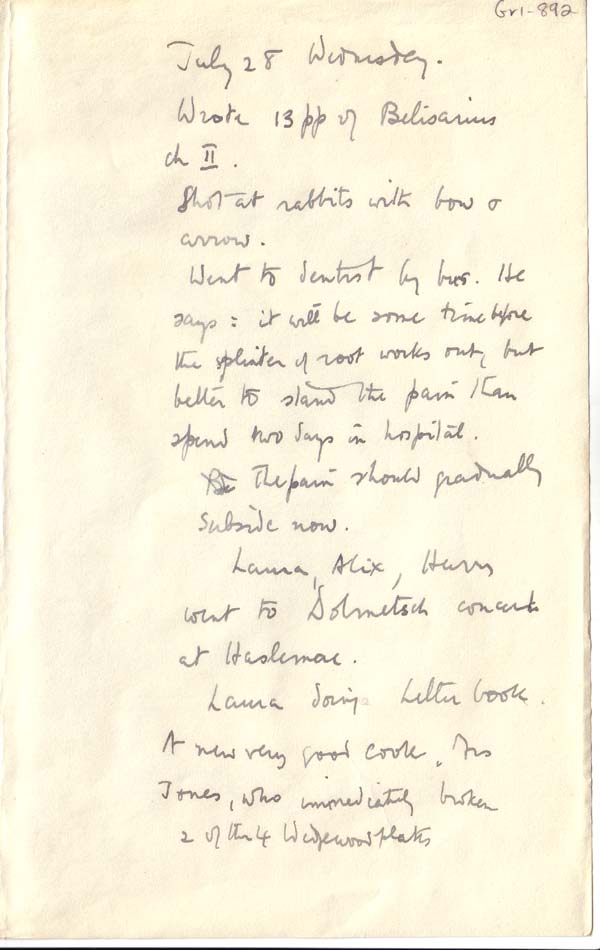 Gr1-892
July 28 Wednesday.
Wrote 13 pp of Belisarius
ch II.
Shot at rabbits with bow &
arrow.
Went to dentist by bus. He
says: it will be some time before
the splinter of root works out, but
better to stand the pain than
spend two days in hospital.
The pain should gradually
subside now.
Laura, Alix, Harry
went to Dolmetsch concert
at Haslemere.
Laura doing Letter book.
A new very good cook, Mrs
Jones, who immediately broken
2 of the 4 Wedgewood plates